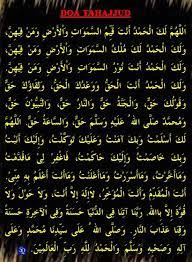 DOA TAHAJJUD
اَللّٰهُمَّ لَكَ الْحَمْدُ أَنْتَ قَيِّمُ السَّمَوَاتِ وَالْأَرْضِ وَمَنْ فِيْهِنَّ،
وَلَكَ الْحَمْدُ لَكَ مُلْكُ السَّمَوَاتِ وَالْأَرْضِ وَمَنْ فِيْهِنَّ،
وَلَكَ الْحَمْدُ أَنْتَ نُوْرُ السَّمَوَاتِ وَالْأَرْضِ وَمَنْ فِيْهِنَّ،
وَلَكَ الْحَمْدُ أَنْتَ الْحَقُّ، وَوَعْدُكَ الْحَقُّ، وَلِقَاؤُكَ حَقٌّ
وَقَوْلُكَ حَقٌّ، وَالْجَنَّةُ حَقٌّ، وَالنَّارُ حَقٌّ، وَالنَّبِيُّوْنَ حَقٌّ
وَمُحَمَّدٌ صَلَّى اللهُ عَلَيْهِ وَسَلَّمَ حَقٌّ، وَالسَّاعَةُ حَقٌّ
اَللّٰهُمَّ لَكَ أَسْلَمْتُ، وَبِكَ آمَنْتُ، وَعَلَيْكَ تَوَكَّلْتُ، وَإِلَيْكَ أَنَبْتُ
وَبِكَ خَاصَمْتُ، وَإِلَيْكَ حَاكَمْتُ، فَاغْفِرْ لِيْ مَا قَدَّمْتُ
وَمَا أَخَّرْتُ، وَمَا أَسْرَرْتُ وَمَا أَعْلَنْتُ، وَمَا أَنْتَ
أَنْتَ الْمُقَدِّمُ وَأَنْتَ الْمُؤَخِّرُ، لَا إِلٰهَ إِلَّا أَنْتَ، وَلَا حَوْلَ وَلَا
قُوَّةَ إِلَّا بِاللهِ. رَبَّنَا آتِنَا فِي الدُّنْيَا حَسَنَةً وَفِي الْآخِرَةِ حَسَنَةً
وَقِنَا عَذَابَ النَّارِ. وَصَلَّى اللهُ عَلَى سَيِّدِنَا مُحَمَّدٍ وَعَلَى
آلِهِ وَصَحْبِهِ وَسَلَّمَ وَالْحَمْدُ لِلّٰهِ رَبِّ الْعَالَمِيْنَ.